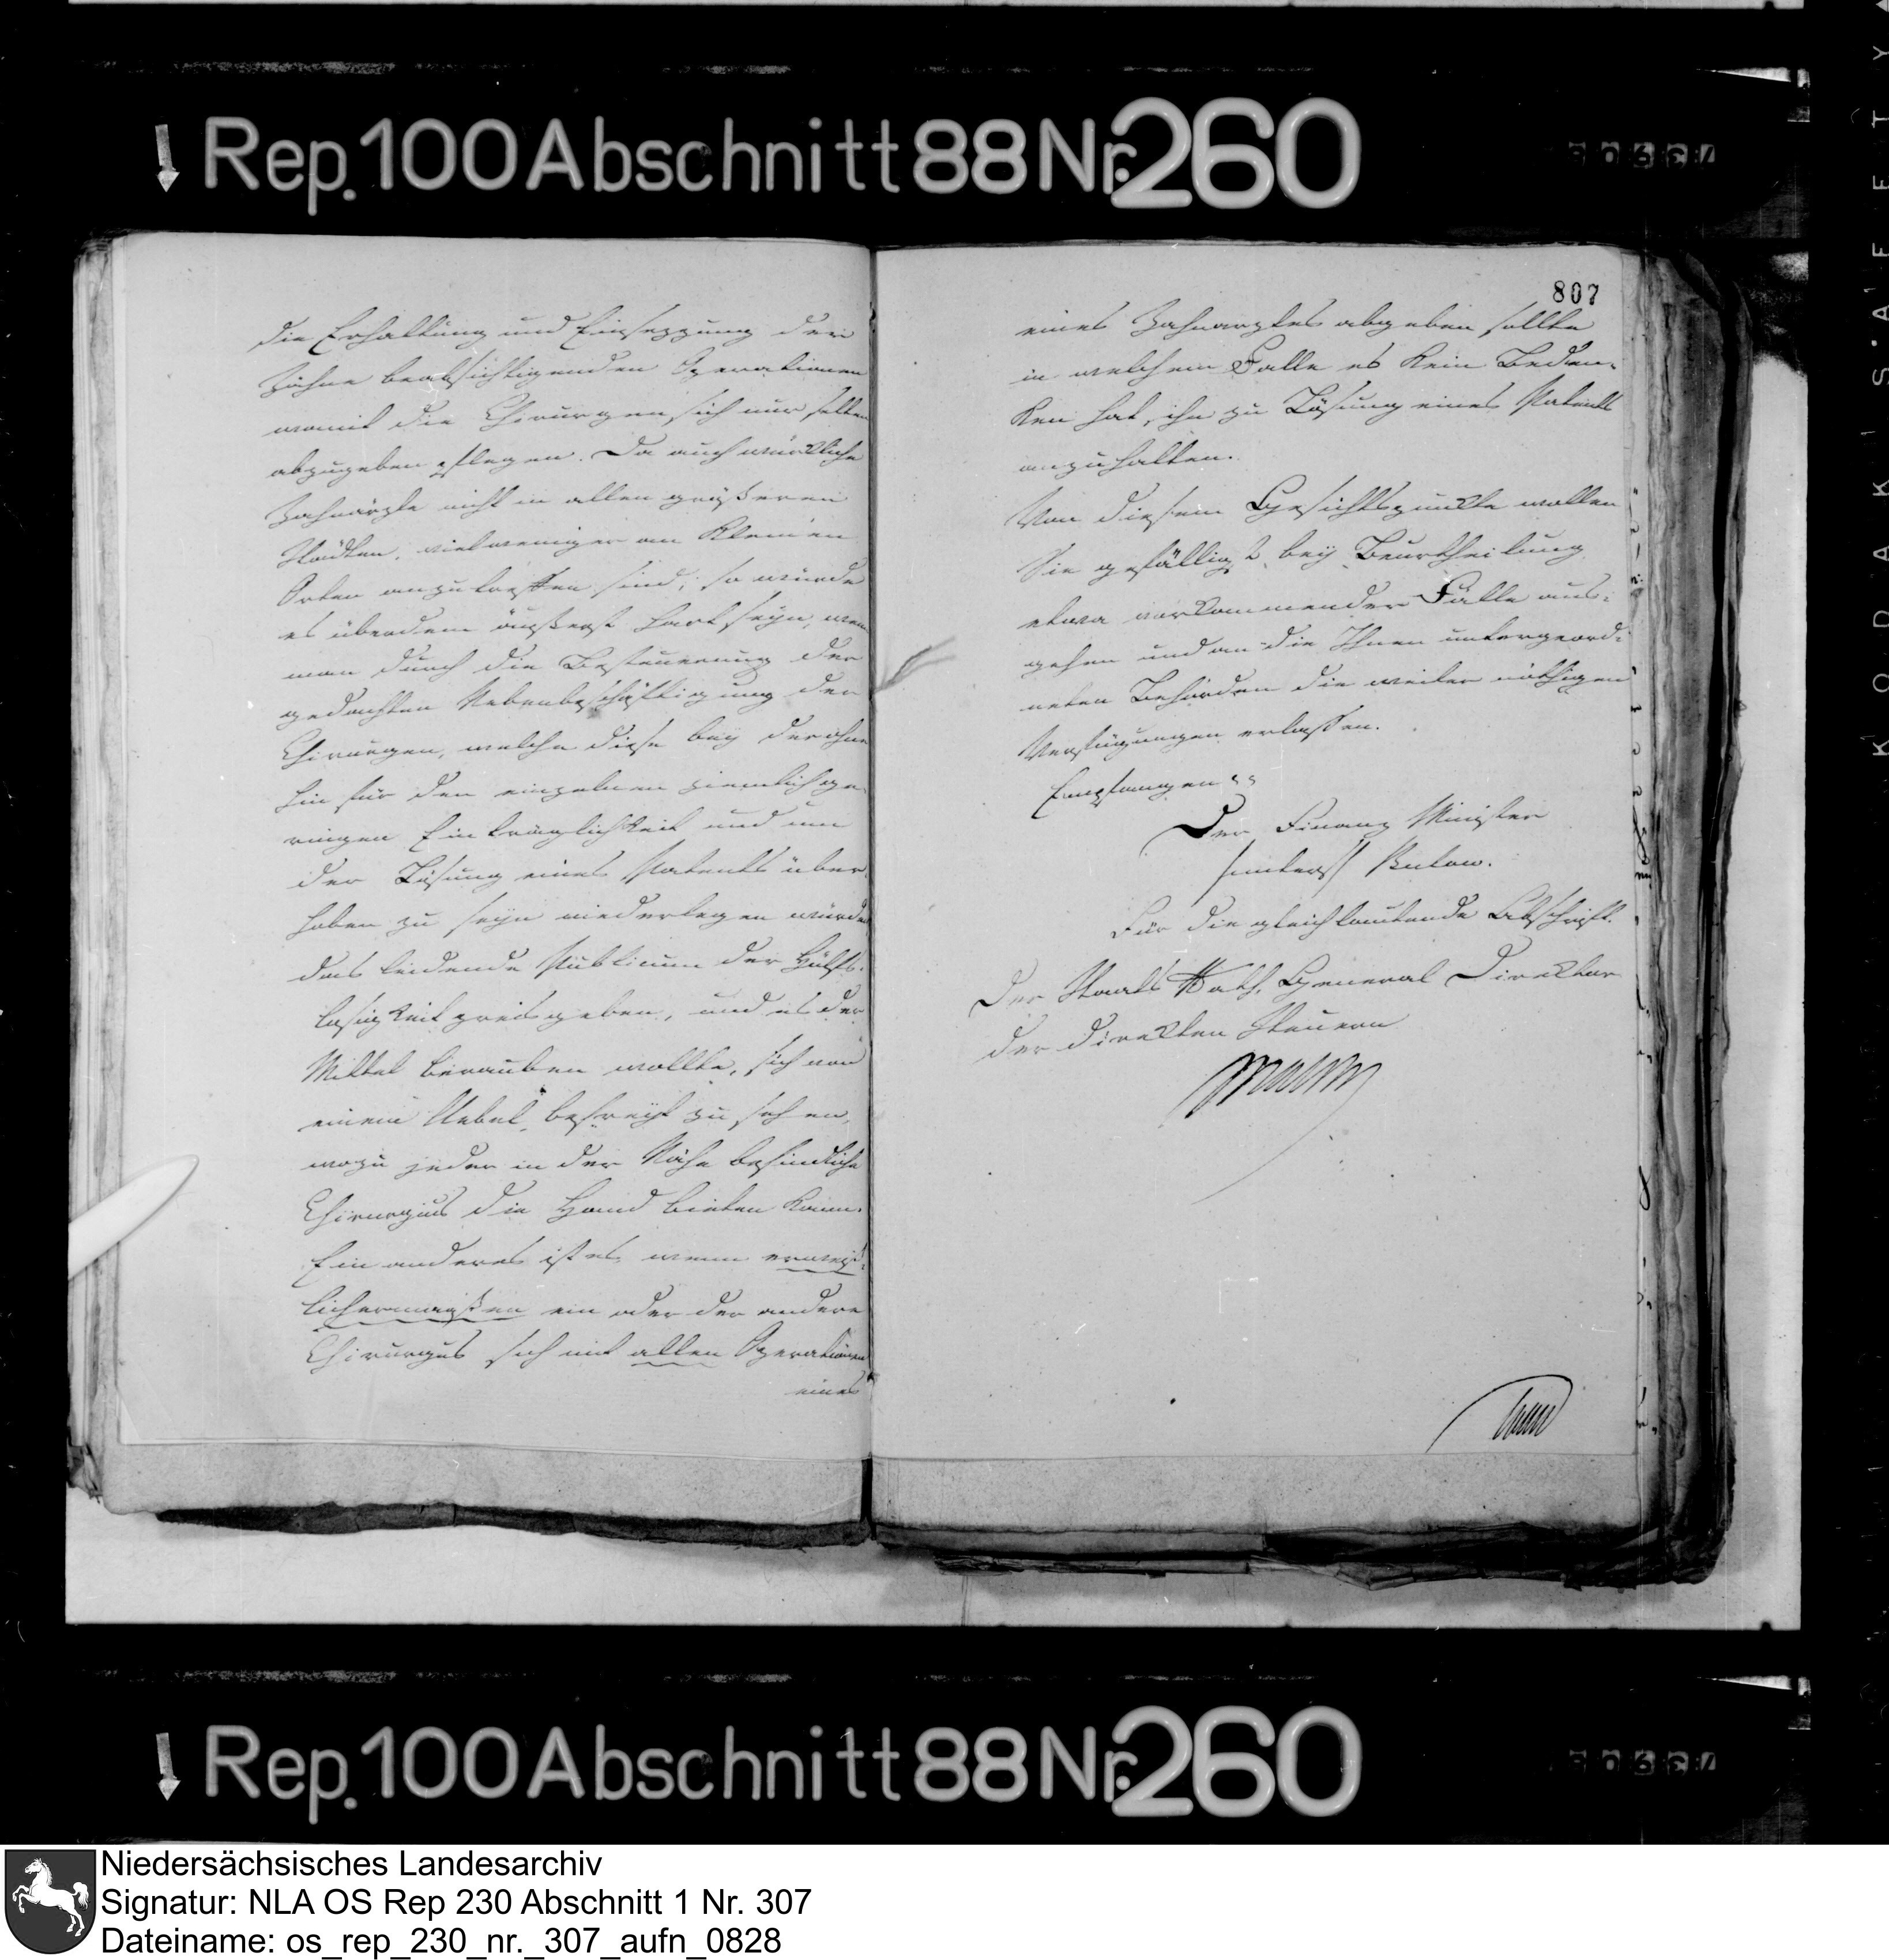 Rep. 100 Abschnitt 88 Nr. 260
die Erhaltung und Einsezzung der
Zähne beabsichtigenden Operationen
womit die Chirurgen sich nur selten
abzugeben pflegen. Da auch würkliche
Zahnärzte nicht in allen größeren
Städten, vielweniger an kleinen
Orten anzutreffen sind; so würde
es überdem äußerst hart seyn, wenn
man durch die Besteuerung der
gedachten Nebenbeschäftigung der
Chirurgen, welche diese bey der ohne
hin für den einzelnen ziemlich ge-
ringen Einträglichkeit und um
der Lösung eines Patents über-
hoben zu seyn niederlegen würden
das leidende Publicum der Hülfs-
losigkeit preis geben, und es der
Mittel berauben wollte, sich von
einem Uebel befreyt zu sehen,
wozu jeder in der Nähe befindliche
Chirurgus die Hand bieten kann.
Ein anderes ist es, wenn erweis-
lichermaßen ein oder der andere
Chirurgus sich mit allen Operationen
eines
807
eines Zahnarztes abgeben sollte
in welchem Falle es kein Beden-
ken hat, ihn zu Lösung eines Patents
anzuhalten.
Von diesem Gesichtspunkte wollen
Sie gefälligst bey Beurtheilung
etwa vorkommender Fälle aus-
gehen und an die Ihnen untergeord-
neten Behörden die weiter nöthigen
Verfügungen erlassen.
Empfangen
Der Finanz Minister
Bulow.
Für die gleichlautende Abschrift.
Der Staats Rath, General Direktor
der direkten Steuern
Rep. 100 Abschnitt 88 Nr. 260
Niedersächsisches Landesarchiv
Signatur: NLA OS Rep 230 Abschnitt 1 Nr. 307
Dateiname: os_rep_230_nr._307_aufn_0828
KODAK SAFETY